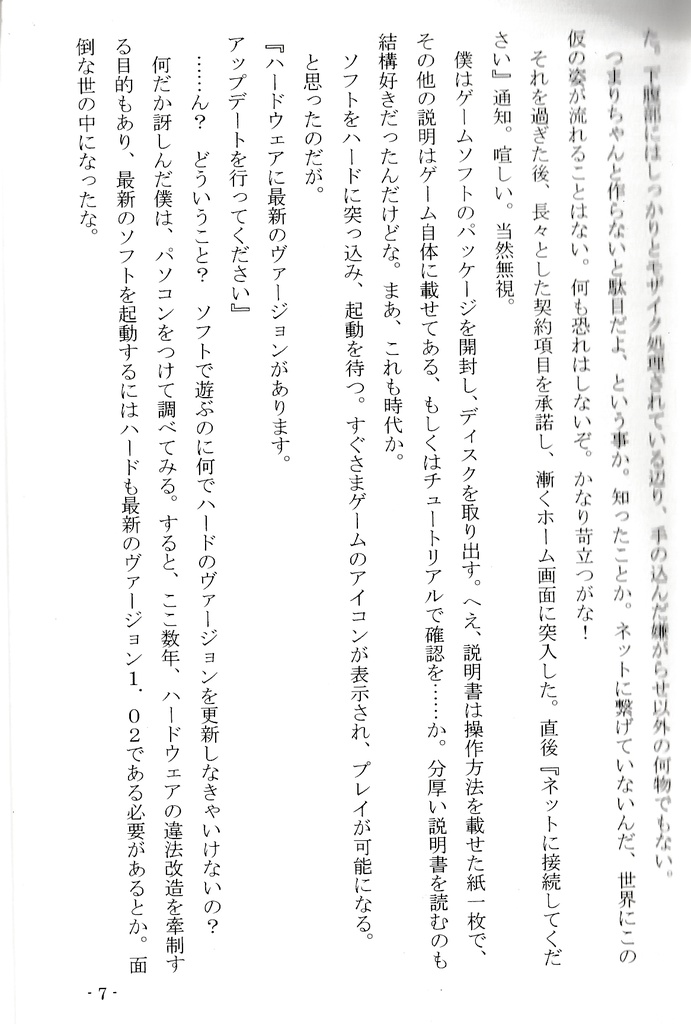 た。下腹部にはしっかりとモザイク処理されている辺り、手の込んだ嫌がらせ以外の何物でもない。
つまりちゃんと作らないと駄目だよ、という事か。知ったことか。ネットに繋げていないんだ、世界にこの
仮の姿が流れることはない。何も恐れはしないぞ。かなり苛立つがな！
それを過ぎた後、長々とした契約項目を承諾し、漸くホーム画面に突入した。直後『ネットに接続してくだ
さい』通知。喧しい。当然無視。
僕はゲームソフトのパッケージを開封し、ディスクを取り出す。へえ、説明書は操作方法を載せた紙一枚で、
その他の説明はゲーム自体に載せてある、もしくはチュートリアルで確認を……か。分厚い説明書を読むのも
結構好きだったんだけどな。まあ、これも時代か。
ソフトをハードに突っ込み、起動を待つ。すぐさまゲームのアイコンが表示され、プレイが可能になる。
と思ったのだが。
『ハードウェアに最新のヴァージョンがあります。
アップデートを行ってください』
……ん？　どういうこと？　ソフトで遊ぶのに何でハードのヴァージョンを更新しなきゃいけないの？
何だか訝しんだ僕は、パソコンをつけて調べてみる。すると、ここ数年、ハードウェアの違法改造を牽制す
る目的もあり、最新のソフトを起動するにはハードも最新のヴァージョン１．０２である必要があるとか。面
倒な世の中になったな。
- 7 -